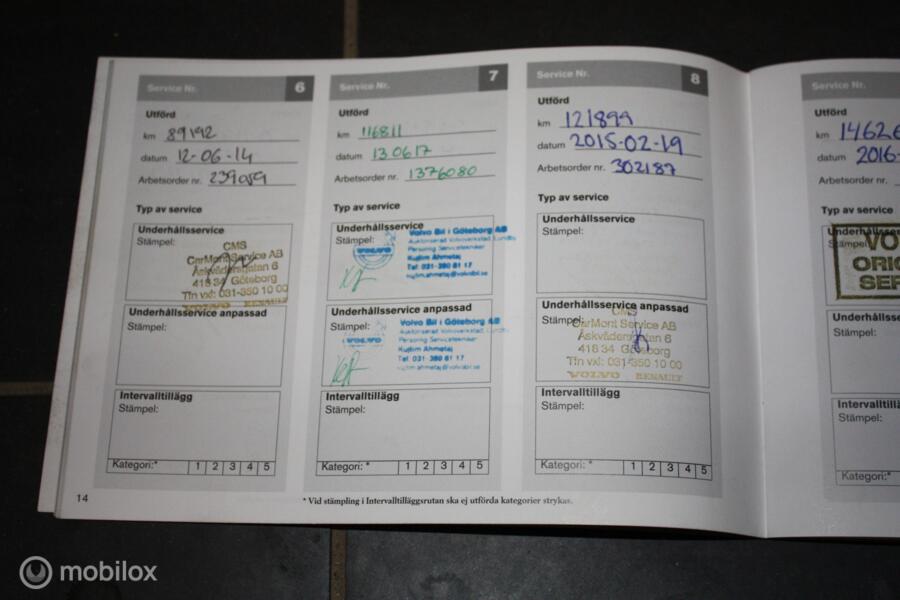 Service Nr. 6
Utförd
km 89192
datum 12-06-14
Arbetsorder nr. 239059
Typ av service
Underhållsservice
Stämpel:
CMS
CarMont Service AB
Askvädersgatan 6
418 34 Göteborg
Tfn vxl: 031-350 10 00
VOLVO RENAULT
Underhållsservice anpassad
Stämpel:
Intervalltillägg
Stämpel:
Kategori:* 1 2 3 4 5
14
Service Nr. 7
Utförd
km 116811
datum 130617
Arbetsorder nr. 1376080
Typ av service
Underhållsservice
Stämpel:
VOLVO
Volvo Bil i Göteborg AB
Auktoriserad Volvoverkstad Lundby
Personlig Servicetekniker
Kujtim Ahmetaj
Tel 031-380 61 17
kujtim.ahmetaj@volvobil.se
Underhållsservice anpassad
Stämpel:
VOLVO
Volvo Bil i Göteborg AB
Auktoriserad Volvoverkstad Lundby
Personlig Servicetekniker
Kujtim Ahmetaj
Tel 031-380 61 17
kujtim.ahmetaj@volvobil.se
Intervalltillägg
Stämpel:
Kategori:* 1 2 3 4 5
* Vid stämpling i Intervalltilläggsrutan ska ej utförda kategorier strykas.
Service Nr. 8
Utförd
km 121899
datum 2015-02-19
Arbetsorder nr. 302187
Typ av service
Underhållsservice
Stämpel:
Underhållsservice anpassad
Stämpel:
CMS
CarMont Service AB
Askvädersgatan 6
418 34 Göteborg
Tfn vxl: 031-350 10 00
VOLVO RENAULT
Intervalltillägg
Stämpel:
Kategori:* 1 2 3 4 5
Service Nr.
Utförd
km 14626
datum 2016-
Arbetsorder nr.
Typ av service
Underhållsservice
Stämpel:
VO
ORIG
SER
Underhållsse
Stämpel:
Intervalltillä
Stämpel:
Kategori:*
mobilox